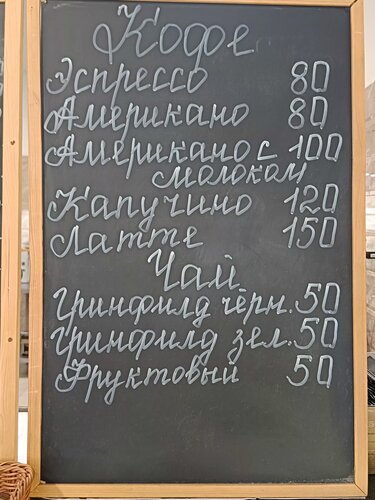 Кофе
Эспрессо 80
Американо 80
Американо с 100
молоком
Капучино 120
Латте 150
Чай
Гринфилд чёрн. 50
Гринфилд зел. 50
Фруктовый 50